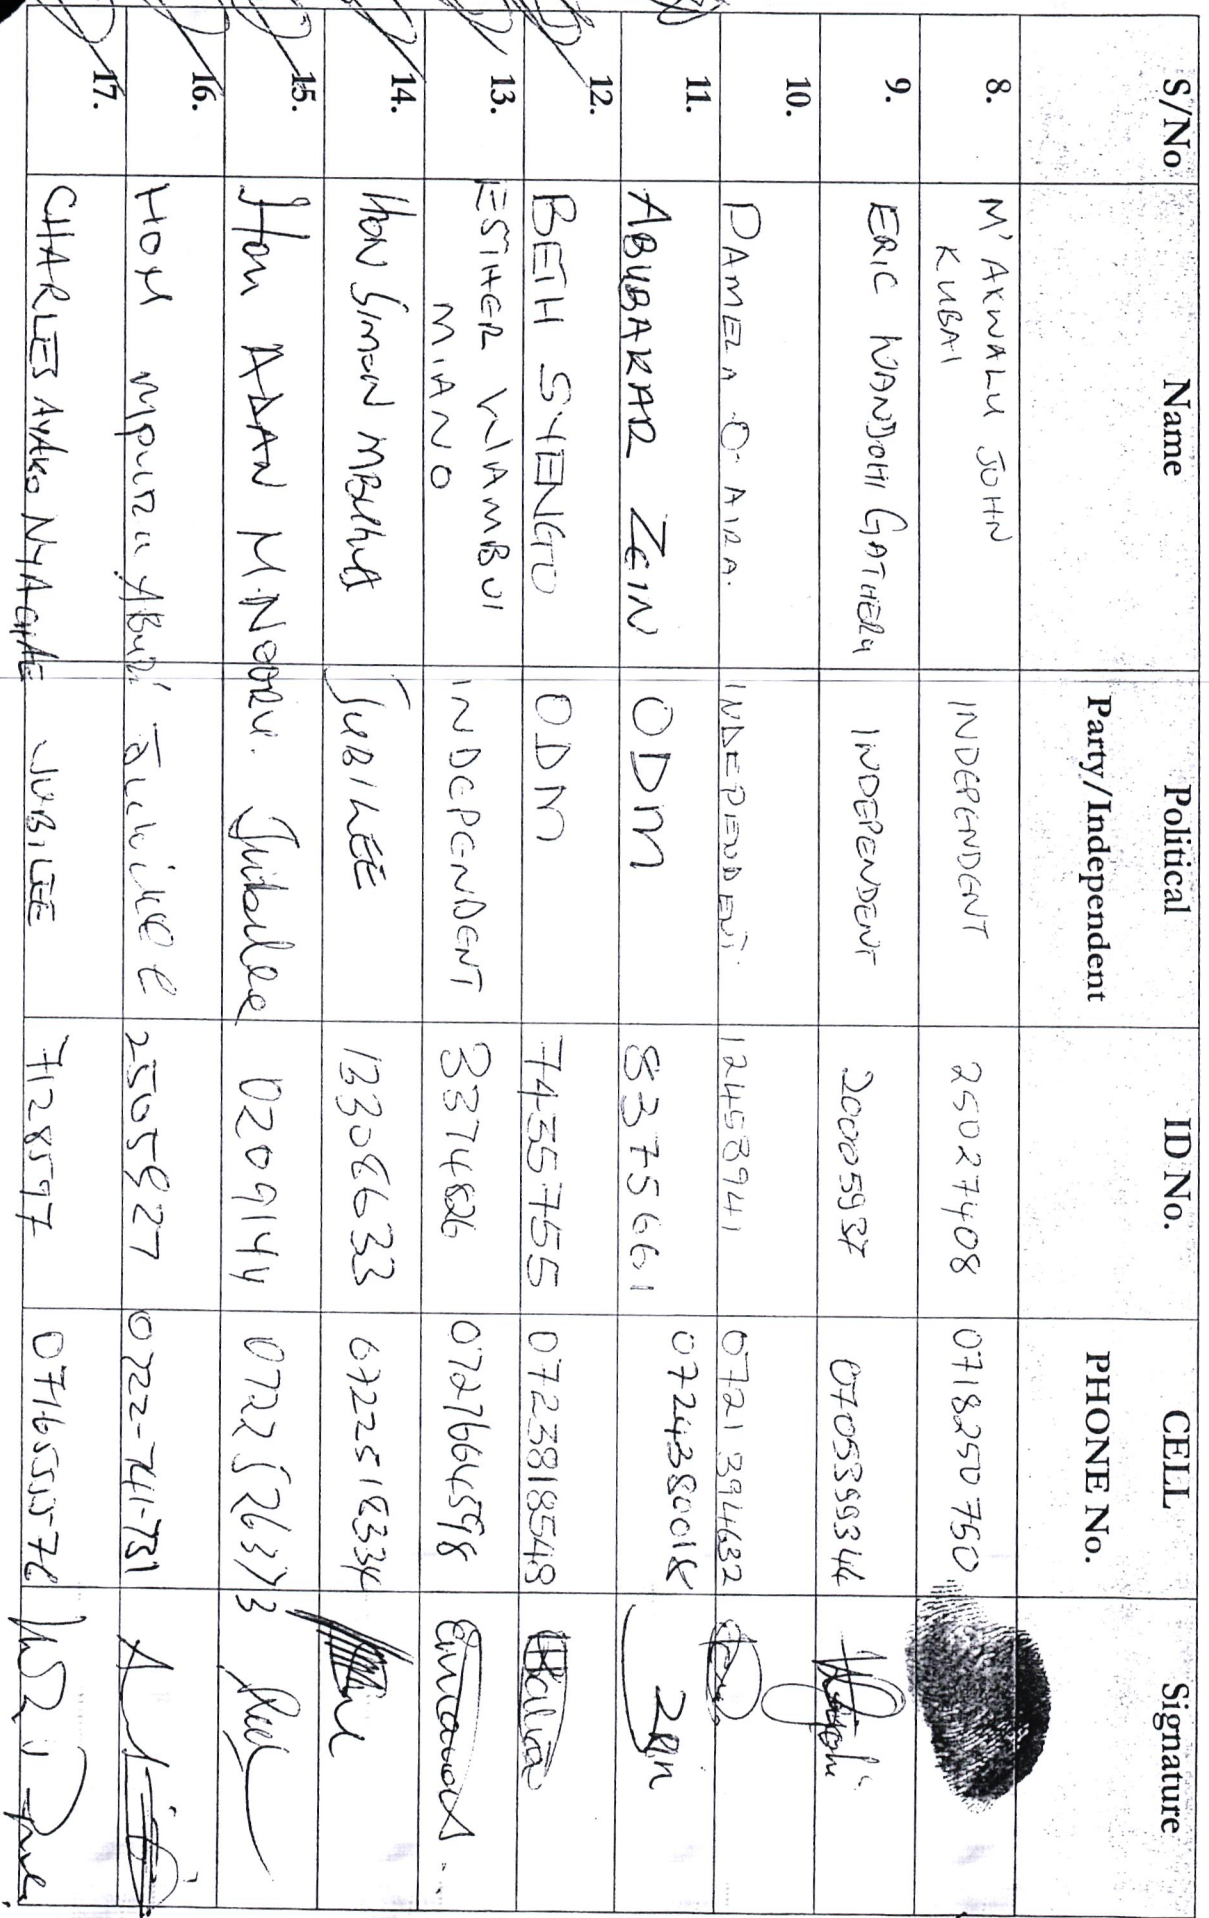 S/No Name Political Party/Independent ID No. CELL PHONE No. Signature
8. M'AKWALU JOHN KUBAI INDEPENDENT 25027408 0718250750
9. ERIC WANDOHI GATHERU INDEPENDENT 20005937 0705399344
10. PAMELA O. AIRA. INDEPENDENT. 12458941 0721394632
11. ABUBAKAR ZEIN ODM 83756661 0724380018 Zein
12. BETH SYENGO ODM 7435755 0723818548
13. ESTHER WAMBUI MIANO INDEPENDENT 3374826 0727664598
14. HON SIMON JUBILEE 13308633 0722518334
15. Hon ADAN M. NOORU. Jubilee 0209144
16. HON Mpuru Aburi Jubilee 2505827 0722-741-731
17. CHARLES AYAKO NYACHAE JUBILEE 7128597